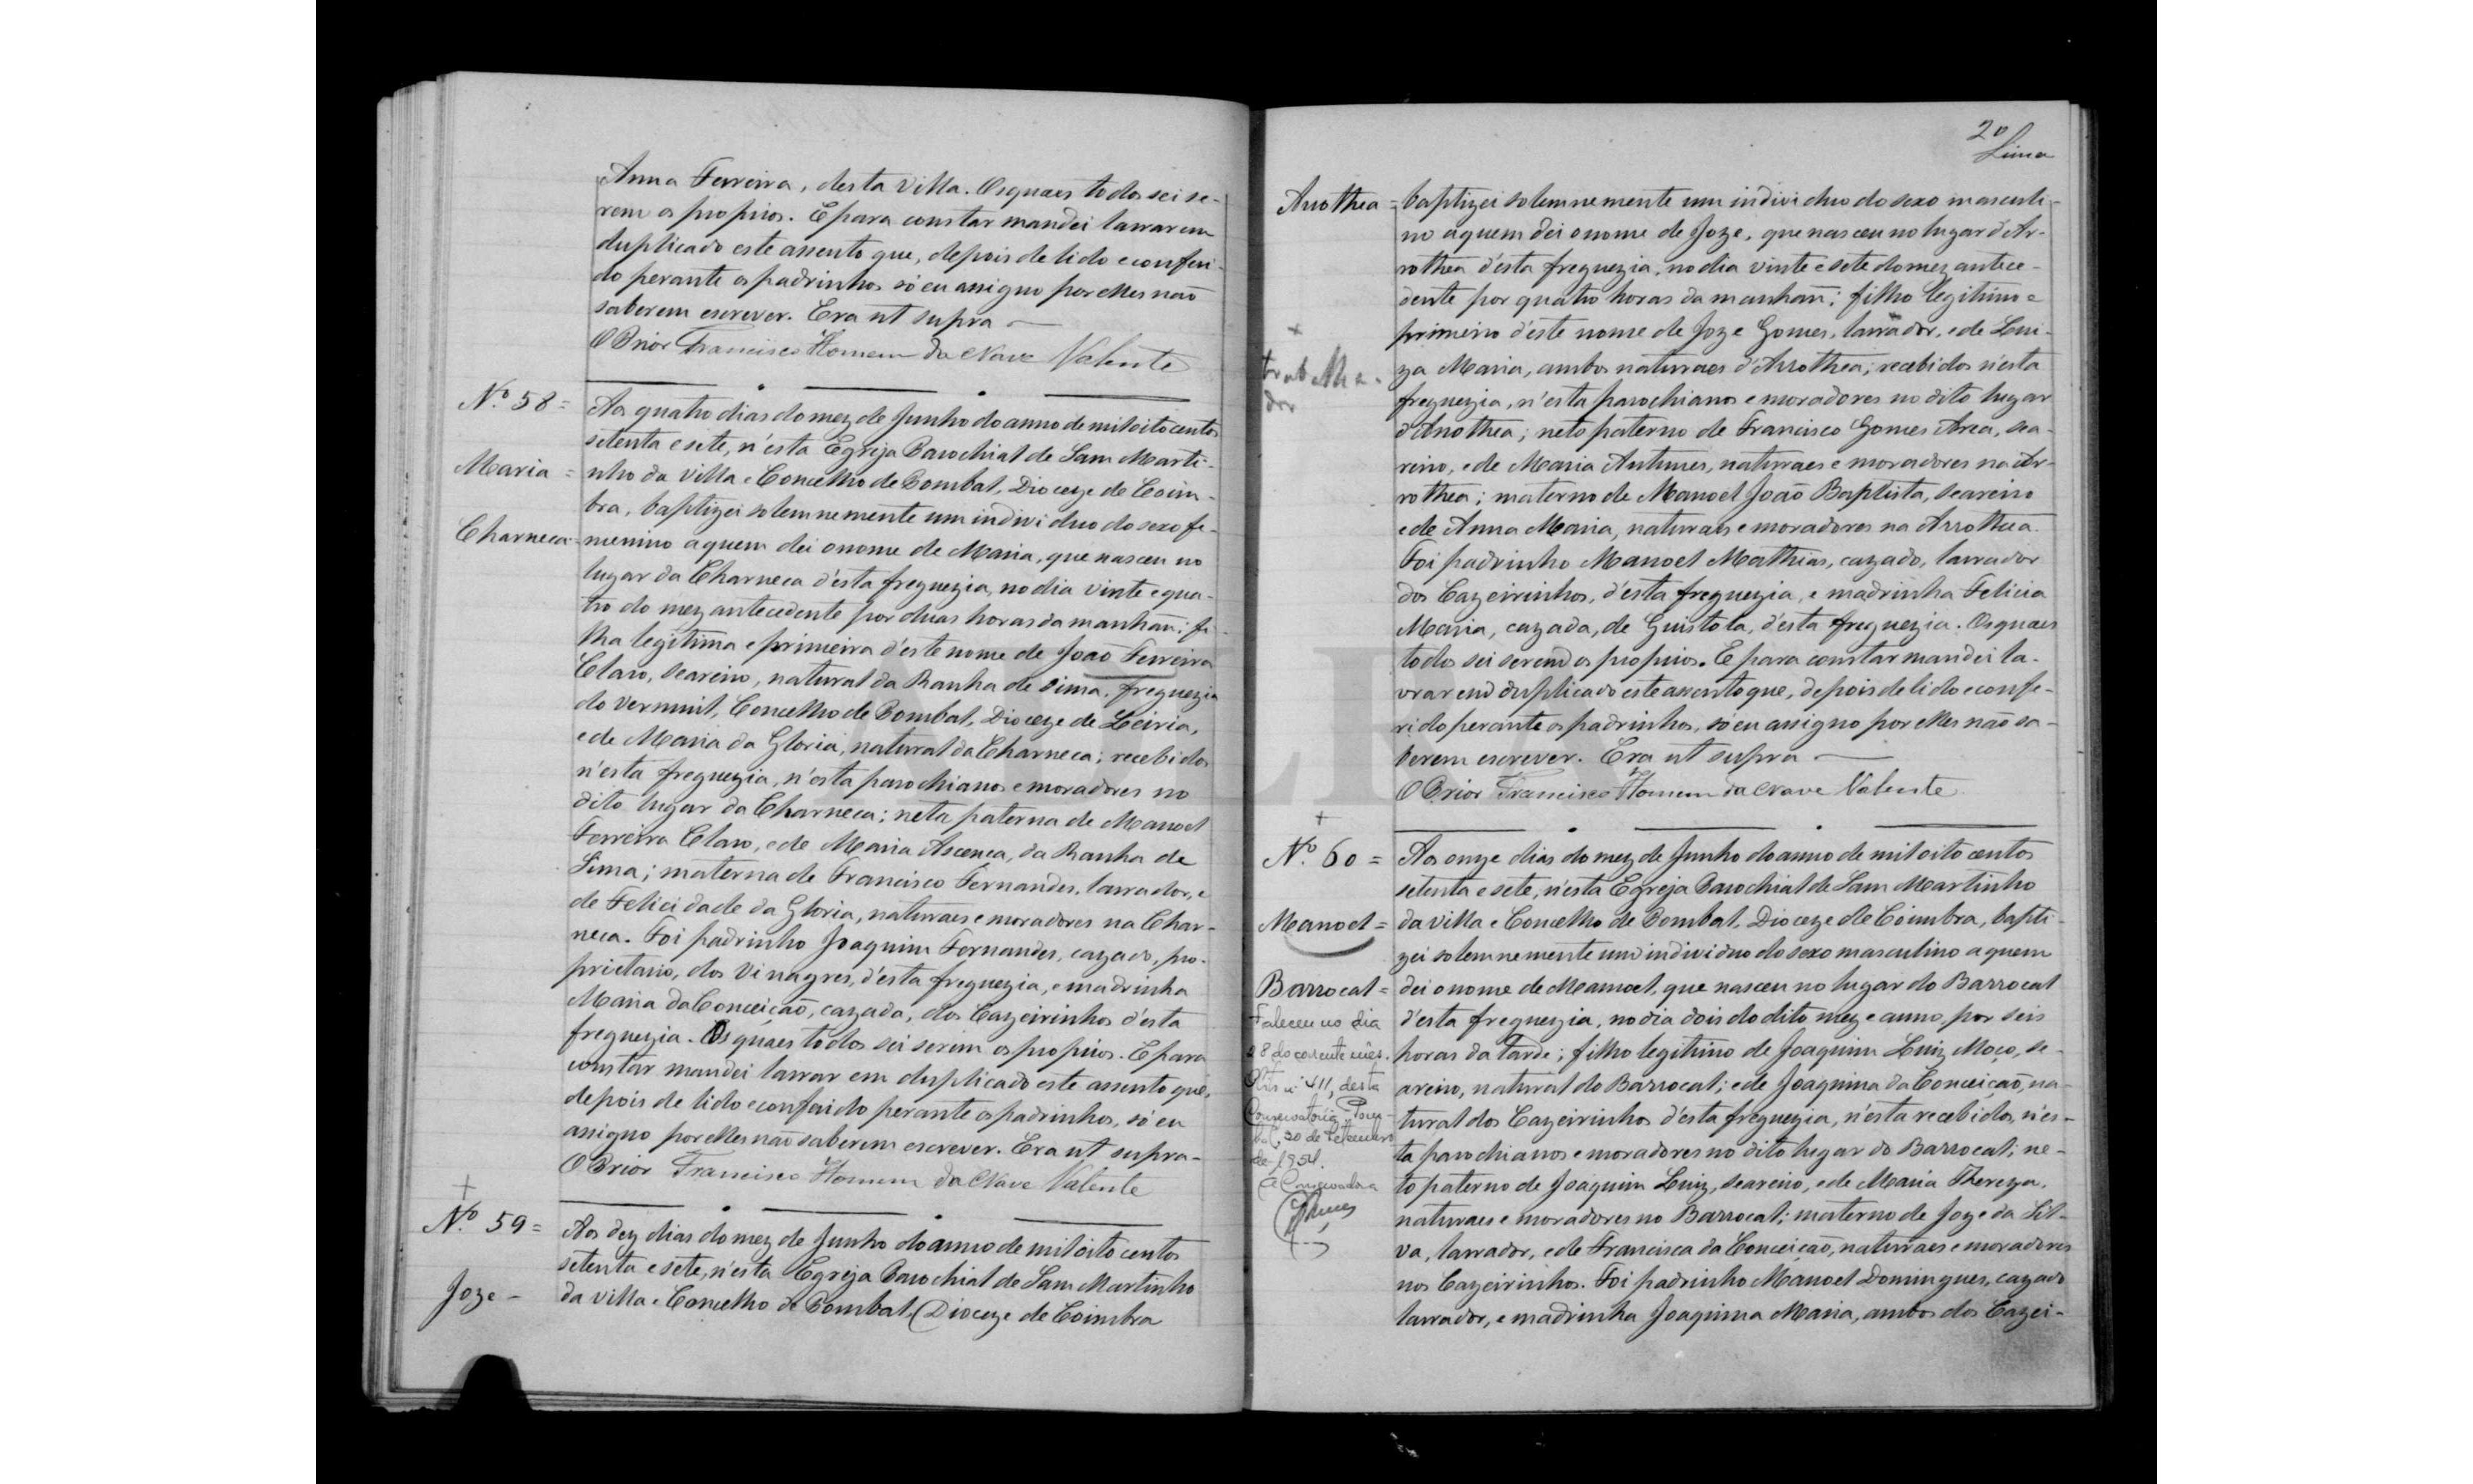 Anna Ferreira, desta Villa. Os quaes todos sei se-
rem os proprios. E para constar mandei lavrar em
duplicado este assento que, depois de lido e conferi-
do perante os padrinhos só eu assigno por elles não
saberem escrever. Era ut supra —
O Prior Francisco Homem da Nave Valente
Nº 58 =
Maria =
Charneca =
Aos quatro dias do mez de Junho do anno de mil oito centos
setenta e sete, n'esta Egreja Parochial de Sam Marti-
nho da Villa e Concelho de Pombal, Dioceze de Coim-
bra, baptizei solemnemente um individuo do sexo fe-
menino a quem dei o nome de Maria, que nasceu no
lugar da Charneca d'esta freguezia, no dia vinte e qua-
tro do mez antecedente por duas horas da manhan; fi-
lha legitima e primeira d'este nome de João Ferreira
Claro, seareiro, natural da Ranha de Sima, freguezia
do Vermuil, Concelho de Pombal, Dioceze de Leiria,
e de Maria da Gloria, natural da Charneca; recebidos
n'esta freguezia, n'esta parochianos e moradores no
dito lugar da Charneca; neta paterna de Manoel
Ferreira Claro, e de Maria Ascença, da Ranha de
Sima; materna de Francisco Fernandes, lavrador, e
de Felicidade da Gloria, naturaes e moradores na Char-
neca. Foi padrinho Joaquim Fernandes, cazado, pro-
prietario, dos Vinagres, d'esta freguezia, e madrinha
Maria da Conceição, cazada, dos Cazeirinhos d'esta
freguezia. Os quaes todos sei serem os proprios. E para
constar mandei lavrar em duplicado este assento que,
depois de lido e conferido perante os padrinhos, só eu
assigno por elles não saberem escrever. Era ut supra -
O Prior Francisco Homem da Nave Valente
Nº 59 =
Joze -
Aos dez dias do mez de Junho do anno de mil oito centos
setenta e sete, n'esta Egreja Parochial de Sam Martinho
da Villa e Concelho de Pombal, Dioceze de Coimbra
20
Lima
Arrothea =
baptizei solemnemente um individuo do sexo masculi-
no a quem dei o nome de Joze, que nasceu no lugar d'Ar-
rothea d'esta freguezia, no dia vinte e sete do mez antece-
dente por quatro horas da manhan; filho legitimo e
primeiro d'este nome de Joze Gomes, lavrador, e de Lui-
za Maria, ambos naturaes d'Arrothea; recebidos n'esta
freguezia, n'esta parochianos e moradores no dito lugar
d'Arrothea; neto paterno de Francisco Gomes Area, sea-
reiro, e de Maria Antunes, naturaes e moradores na Ar-
rothea; materno de Manoel João Baptista, seareiro
e de Anna Maria, naturaes e moradores na Arrothea.
Foi padrinho Manoel Mathias, cazado, lavrador
dos Cazeirinhos, d'esta freguezia, e madrinha Felicia
Maria, cazada, de Guistola, d'esta freguezia. Os quaes
todos sei serem os proprios. E para constar mandei la-
vrar em duplicado este assento que, depois de lido e confe-
rido perante os padrinhos, só eu assigno por elles não sa-
berem escrever. Era ut supra —
O Prior Francisco Homem da Nave Valente
Nº 60 =
Manoel =
Barrocal =
Faleceu no dia
28 do corrente mês.
nº 411, desta
Conservatória. Pom-
bal, 30 de Setembro
de 1954.
A Conservadora
Aos onze dias do mez de Junho do anno de mil oito centos
setenta e sete, n'esta Egreja Parochial de Sam Martinho
da Villa e Concelho de Pombal, Dioceze de Coimbra, bapti-
zei solemnemente um individuo do sexo masculino a quem
dei o nome de Manoel, que nasceu no lugar do Barrocal
d'esta freguezia, no dia dois do dito mez e anno, por seis
horas da tarde; filho legitimo de Joaquim Luiz Moço, se-
areiro, natural do Barrocal; e de Joaquina da Conceição, na-
tural dos Cazeirinhos d'esta freguezia, n'esta recebidos, n'es-
ta parochianos e moradores no dito lugar do Barrocal; ne-
to paterno de Joaquim Luiz, seareiro, e de Maria Thereza,
naturaes e moradores no Barrocal; materno de Joze da Sil-
va, lavrador, e de Francisca da Conceição, naturaes e moradores
nos Cazeirinhos. Foi padrinho Manoel Domingues, cazado
lavrador, e madrinha Joaquina Maria, ambos dos Cazei-